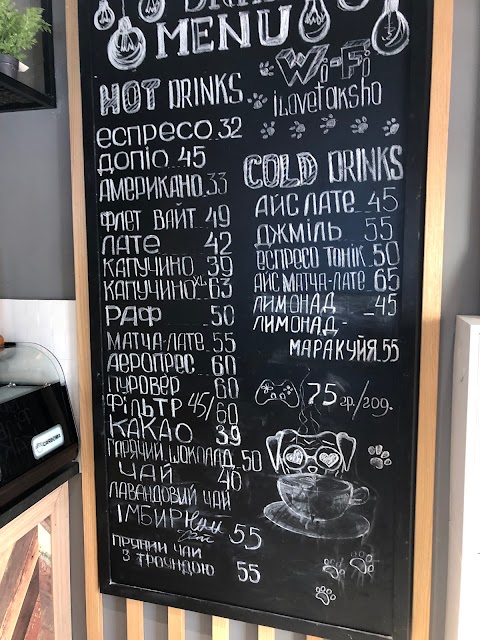 MENU
HOT DRINKS
еспресо 32
допіо 45
американо 33
флет вайт 49
лате 42
капучино 39
капучино XL 63
раф 50
матча-лате 55
аеропрес 60
пуровер 60
фільтр 45/60
какао 39
гарячий шоколад 50
чай 40
лавандовий чай
імбирний 55
пряний чай
з трояндою 55
Wi-Fi
iLovetaksho
COLD DRINKS
айс лате 45
джміль 55
еспресо тонік 50
айс матча-лате 65
лимонад 45
лимонад-
маракуйя 55
75 гр/год.